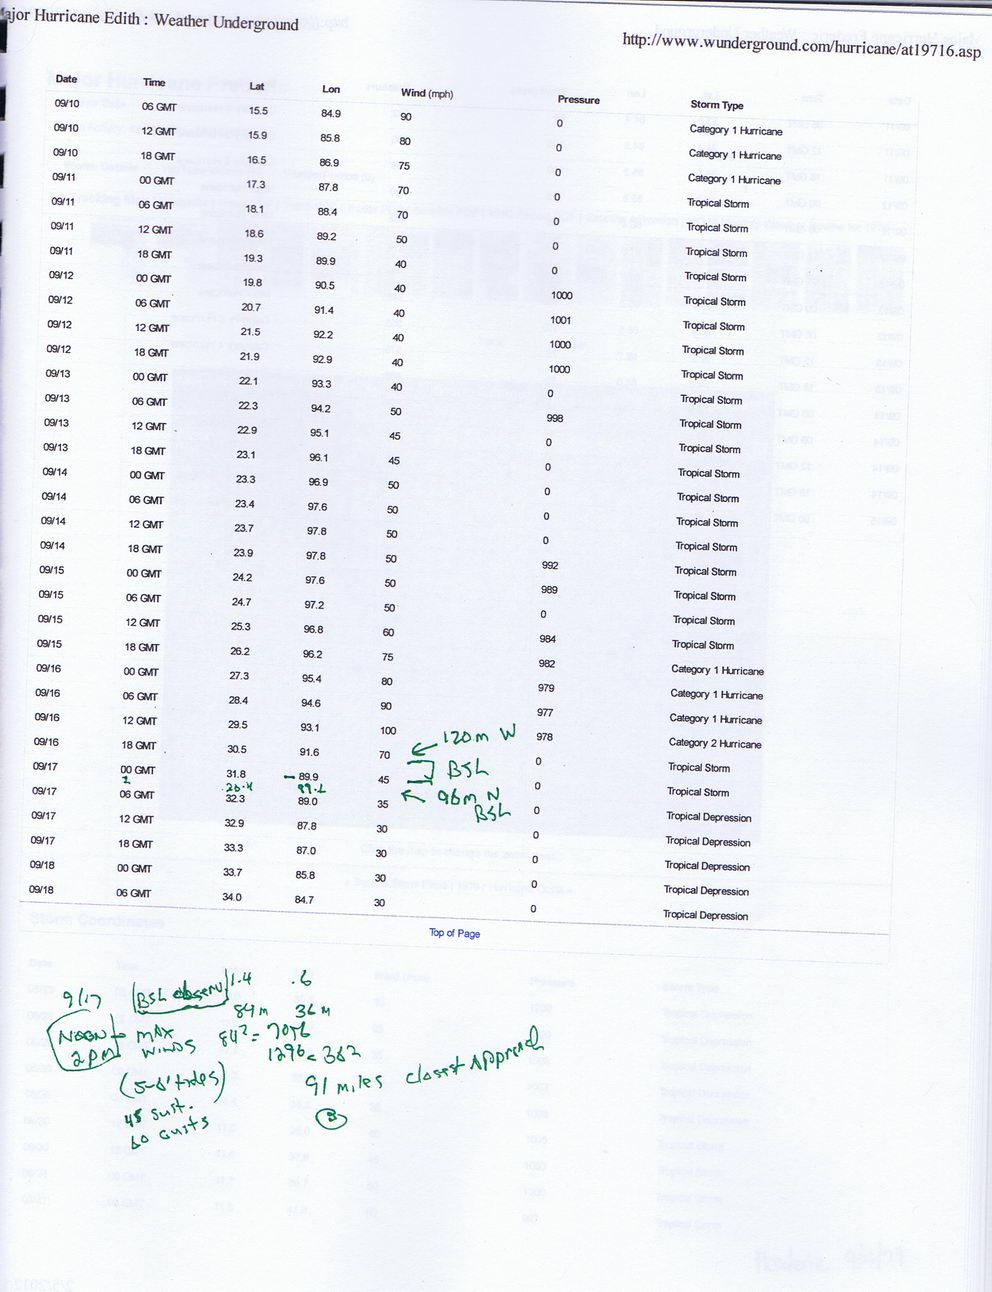 ajor Hurricane Edith : Weather Underground
http://www.wunderground.com/hurricane/at19716.asp
Date Time Lat Lon Wind (mph) Pressure Storm Type
09/10 06 GMT 15.5 84.9 90 0 Category 1 Hurricane
09/10 12 GMT 15.9 85.8 80 0 Category 1 Hurricane
09/10 18 GMT 16.5 86.9 75 0 Category 1 Hurricane
09/11 00 GMT 17.3 87.8 70 0 Tropical Storm
09/11 06 GMT 18.1 88.4 70 0 Tropical Storm
09/11 12 GMT 18.6 89.2 50 0 Tropical Storm
09/11 18 GMT 19.3 89.9 40 0 Tropical Storm
09/12 00 GMT 19.8 90.5 40 1000 Tropical Storm
09/12 06 GMT 20.7 91.4 40 1001 Tropical Storm
09/12 12 GMT 21.5 92.2 40 1000 Tropical Storm
09/12 18 GMT 21.9 92.9 40 1000 Tropical Storm
09/13 00 GMT 22.1 93.3 40 0 Tropical Storm
09/13 06 GMT 22.3 94.2 50 998 Tropical Storm
09/13 12 GMT 22.9 95.1 45 0 Tropical Storm
09/13 18 GMT 23.1 96.1 45 0 Tropical Storm
09/14 00 GMT 23.3 96.9 50 0 Tropical Storm
09/14 06 GMT 23.4 97.6 50 0 Tropical Storm
09/14 12 GMT 23.7 97.8 50 0 Tropical Storm
09/14 18 GMT 23.9 97.8 50 992 Tropical Storm
09/15 00 GMT 24.2 97.6 50 989 Tropical Storm
09/15 06 GMT 24.7 97.2 50 0 Tropical Storm
09/15 12 GMT 25.3 96.8 60 984 Tropical Storm
09/15 18 GMT 26.2 96.2 75 982 Category 1 Hurricane
09/16 00 GMT 27.3 95.4 80 979 Category 1 Hurricane
09/16 06 GMT 28.4 94.6 90 977 Category 1 Hurricane
09/16 12 GMT 29.5 93.1 100 978 Category 2 Hurricane
09/16 18 GMT 30.5 91.6 70 0 Tropical Storm
← 120 m W
09/17 00 GMT 31.8 89.9 45 0 Tropical Storm
BSL
09/17 06 GMT 32.3 89.0 35 0 Tropical Depression
← 96m N
BSL
09/17 12 GMT 32.9 87.8 30 0 Tropical Depression
09/17 18 GMT 33.3 87.0 30 0 Tropical Depression
09/18 00 GMT 33.7 85.8 30 0 Tropical Depression
09/18 06 GMT 34.0 84.7 30 0 Tropical Depression
Top of Page
9/17 BSL observ 1.4 .6
84 m 36 m
NOON MAX 84² = 7056
2 PM WINDS 1296 = 36²
91 miles closest approach
(5-6' tides)
45 sust.
60 Gusts
B